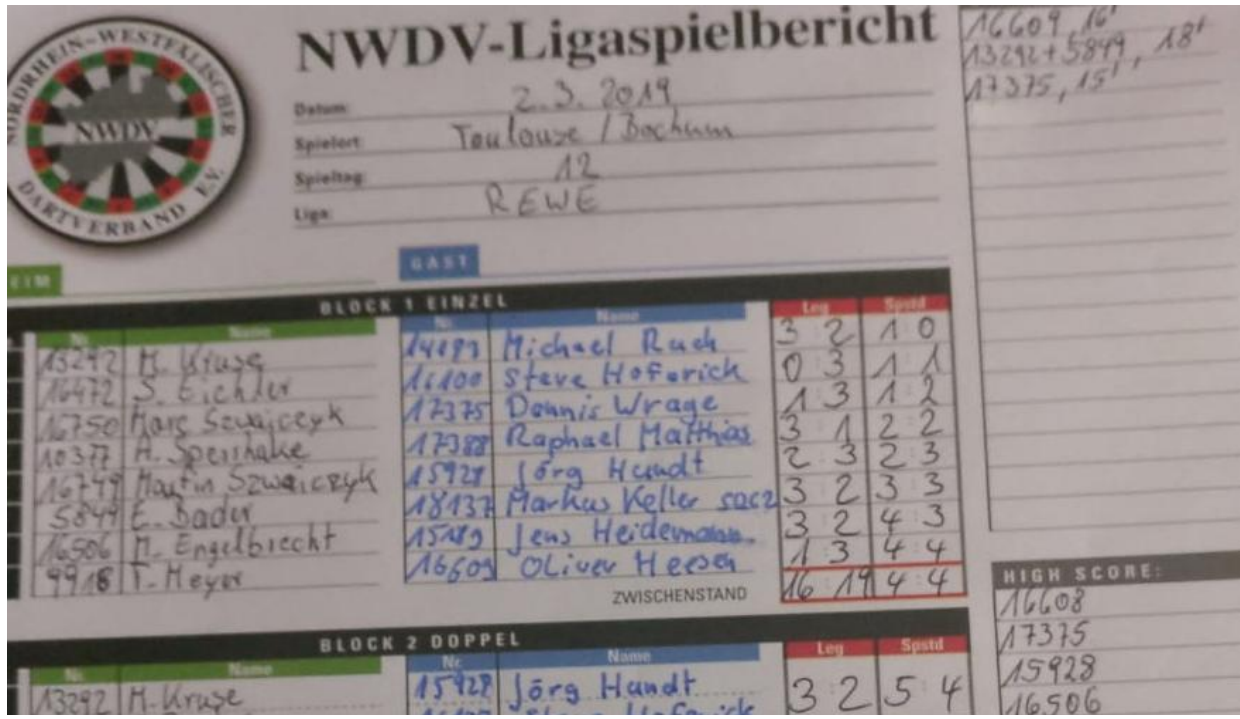 NORDRHEIN-WESTFÄLISCHER
NWDV
DARTVERBAND E.V.
NWDV-Ligaspielbericht
Datum: 2.3.2019
Spielort: Toulouse / Bochum
Spieltag: 12
Liga: REWE
16609, 16'
13292+5849, 18'
17375, 15'
EIM
GAST
BLOCK 1 EINZEL
Nr. Name Nr. Name Leg Spstd
13292 M. Kruse 14193 Michael Rach 3 : 2 1 : 0
16472 S. Eichler 16100 Steve Hoferick 0 : 3 1 : 1
16750 Marc Szwaiczyk 17375 Dennis Wrage 1 : 3 1 : 2
10377 M. Spershake 17388 Raphael Matthias 3 : 1 2 : 2
16749 Martin Szwaiczyk 15928 Jörg Hundt 2 : 3 2 : 3
5849 E. Bader 18137 Markus Keller 3 : 2 3 : 3
16506 M. Engelbrecht 15189 Jens Heidemann 3 : 2 4 : 3
9918 T. Meyer 16609 Oliver Heesen 1 : 3 4 : 4
ZWISCHENSTAND 16 19 4 4
BLOCK 2 DOPPEL
Nr. Name Nr. Name Leg Spstd
13292 M. Kruse 15928 Jörg Hundt 3 : 2 5 : 4
Steve Hoferick
HIGH SCORE:
16608
17375
15928
16506